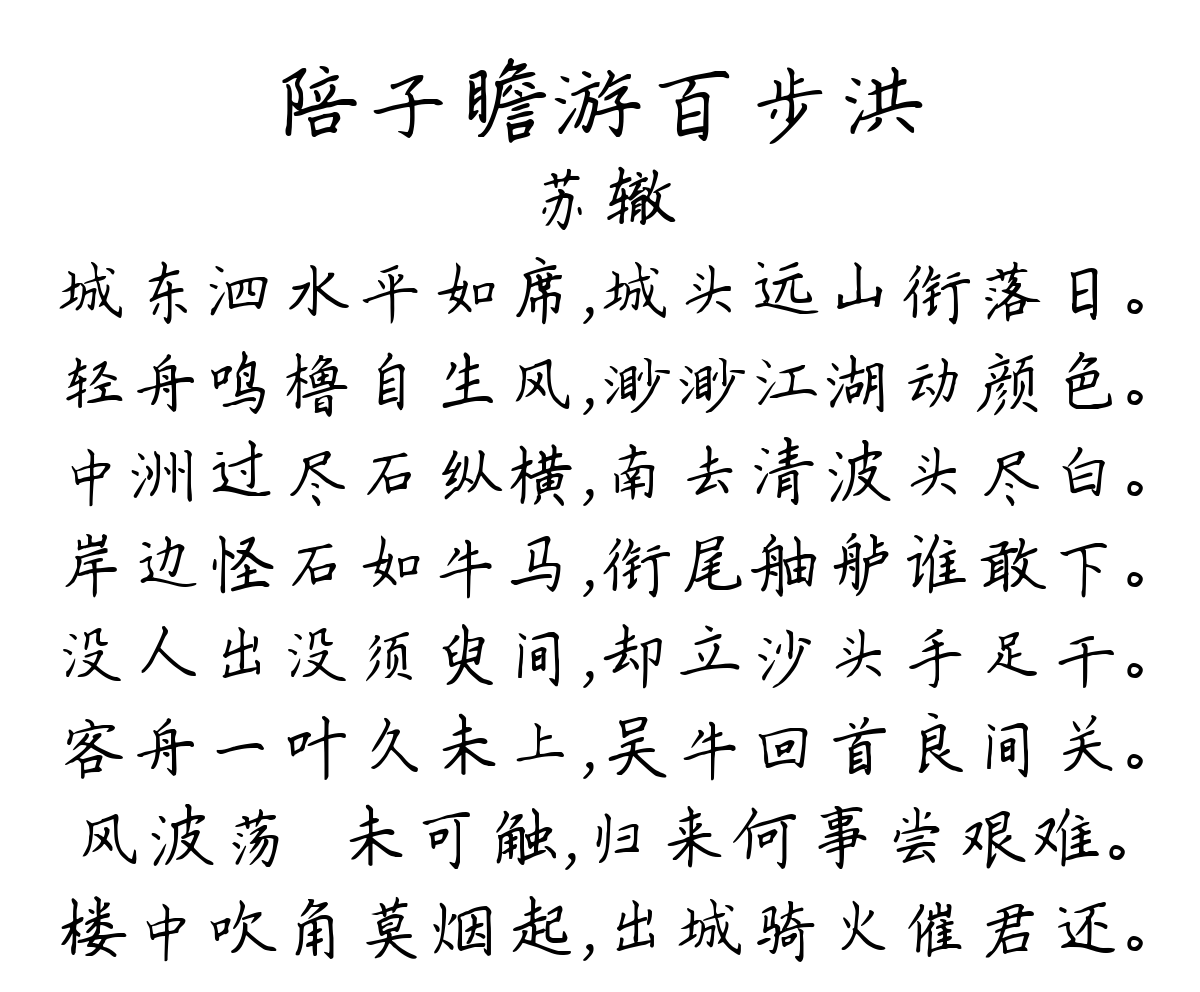 陪子瞻游百步洪
苏辙
城东泗水平如席,城头远山衔落日。
轻舟鸣橹自生风,渺渺江湖动颜色。
中洲过尽石纵横,南去清波头尽白。
岸边怪石如牛马,衔尾舳舻谁敢下。
没人出没须臾间,却立沙头手足干。
客舟一叶久未上,吴牛回首良间关。
风波荡 未可触,归来何事尝艰难。
楼中吹角莫烟起,出城骑火催君还。